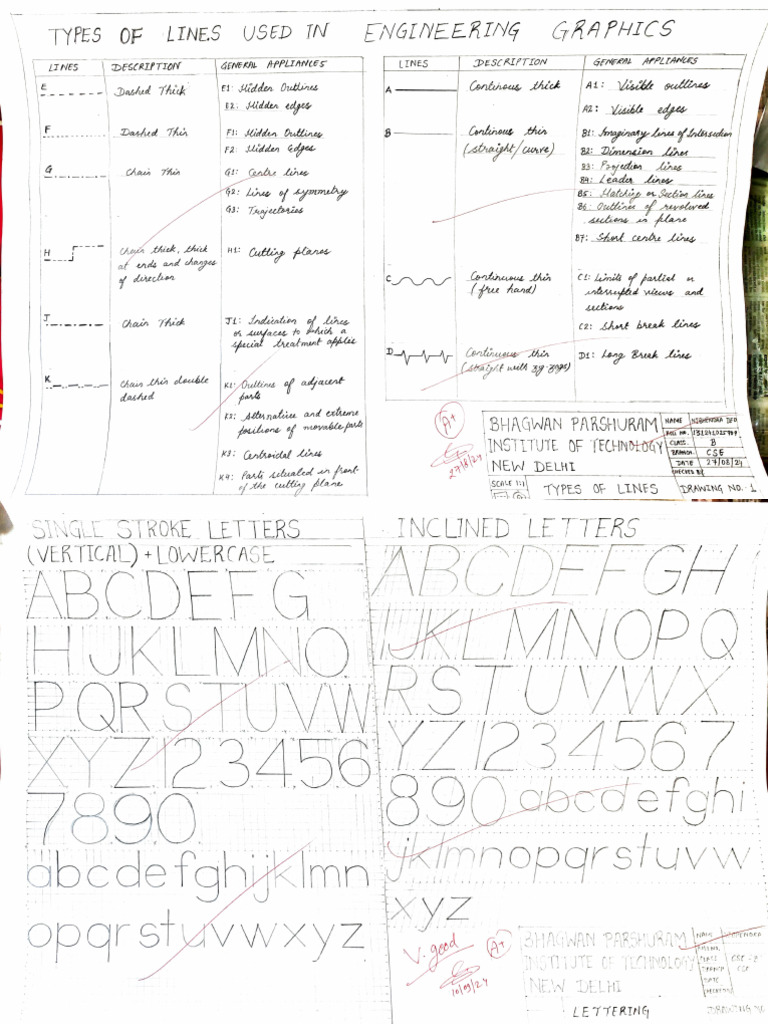 TYPES OF LINES USED IN ENGINEERING GRAPHICS
LINES DESCRIPTION GENERAL APPLIANCES
E Dashed Thick E1: Hidden Outlines
E2: Hidden edges
F Dashed Thin F1: Hidden Outlines
F2: Hidden Edges
G Chain Thin G1: Centre lines
G2: Lines of symmetry
G3: Trajectories
H Chain thick, thick H1: Cutting planes
at ends and changes
of direction
J Chain Thick J1: Indication of lines
or surfaces to which a
special treatment applies
K Chain thin double K1: Outlines of adjacent
dashed parts
K2: Alternative and extreme
positions of movable parts
K3: Centroidal lines
K4: Parts situated in front
of the cutting plane
LINES DESCRIPTION GENERAL APPLIANCES
A Continous thick A1: Visible outlines
A2: Visible edges
B Continous thin B1: Imaginary lines of Intersection
(straight/curve) B2: Dimension lines
B3: Projection lines
B4: Leader lines
B5: Hatching or Section lines
B6: Outlines of revolved
sections in plane
B7: Short centre lines
C Continuous thin C1: Limits of partial or
(free hand) interrupted views and
sections
C2: Short break lines
D Continuous thin D1: Long Break lines
(straight with zig-zags)
A+
27/8/24
BHAGWAN PARSHURAM
INSTITUTE OF TECHNOLOGY
NEW DELHI
NAME
ROLL NO.
CLASS B
BRANCH CSE
DATE 27/08/24
CHECKED BY
SCALE 1:1 TYPES OF LINES DRAWING NO.-1
SINGLE STROKE LETTERS
(VERTICAL) + LOWERCASE
ABCDEFG
HIJKLMNO
PQRSTUVW
XYZ123456
7890
abcdefghijklmn
opqrstuvwxyz
INCLINED LETTERS
ABCDEFGH
IJKLMNOPQ
RSTUVWX
YZ1234567
890abcdefghi
jklmnopqrstuvw
xyz
V. good
A+
10/09/24
BHAGWAN PARSHURAM
INSTITUTE OF TECHNOLOGY
NEW DELHI
LETTERING DRAWING NO